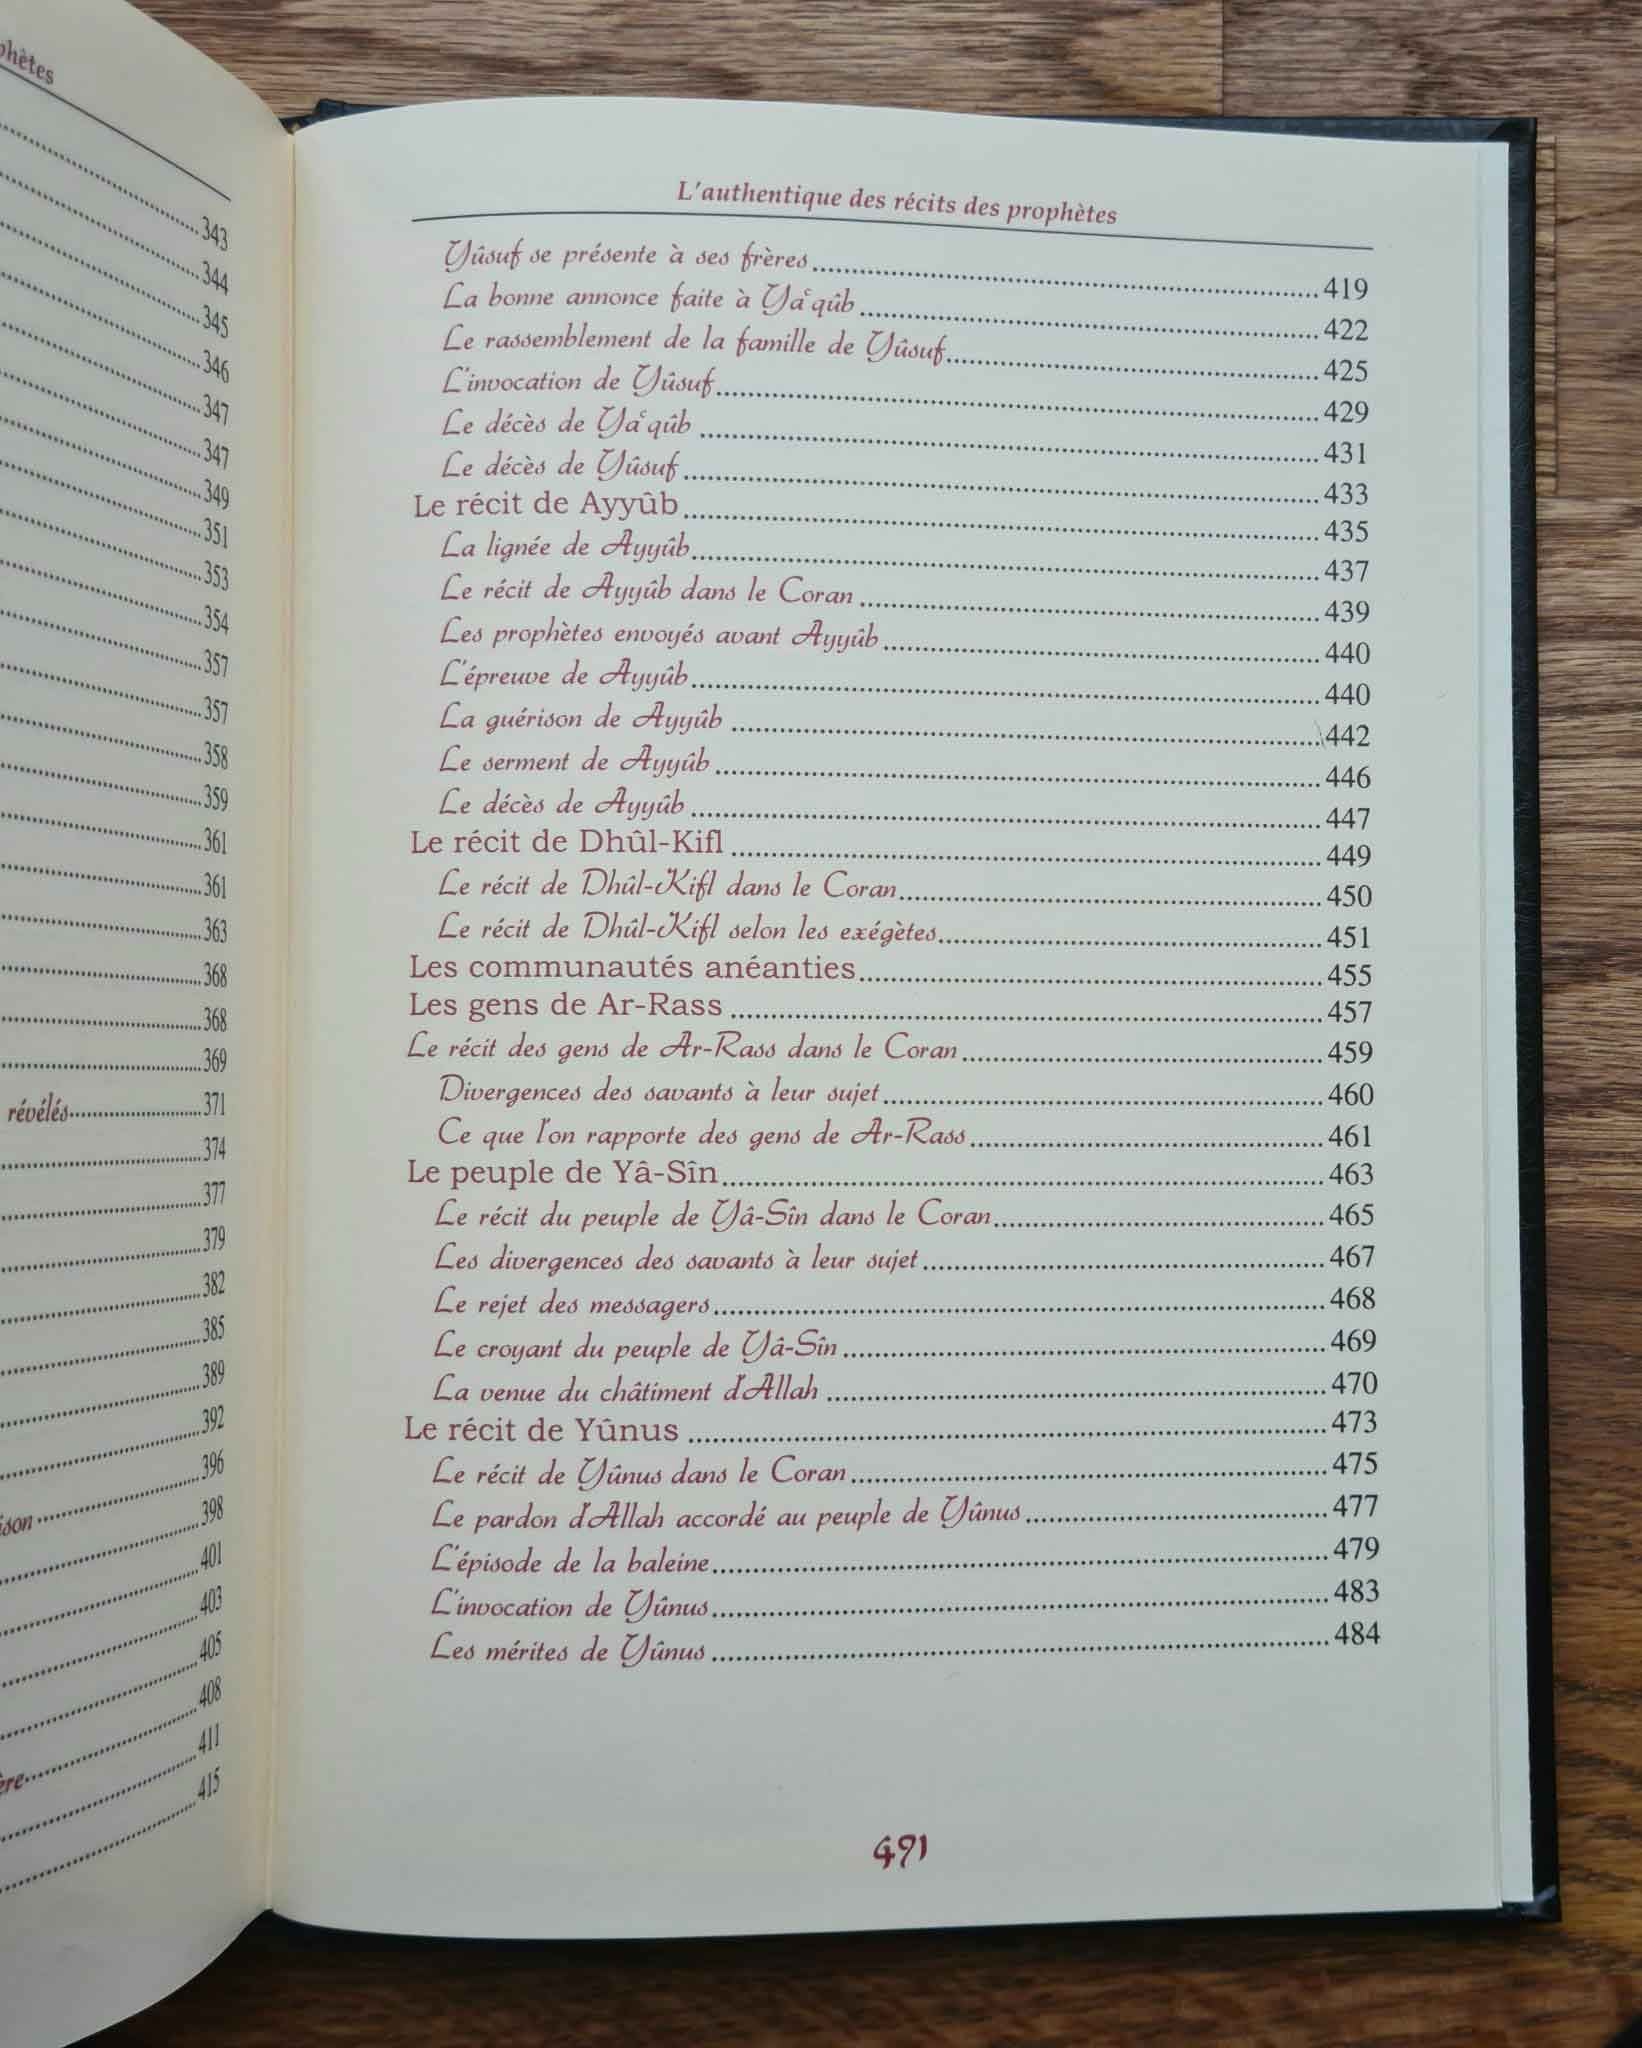 phètes
343
344
345
346
347
347
349
351
353
354
357
357
358
359
361
361
363
368
368
369
révélés 371
374
377
379
382
385
389
392
396
398
401
403
405
408
411
415
L'authentique des récits des prophètes
Yûsuf se présente à ses frères 419
La bonne annonce faite à Yaʿqûb 422
Le rassemblement de la famille de Yûsuf 425
L'invocation de Yûsuf 429
Le décès de Yaʿqûb 431
Le décès de Yûsuf 433
Le récit de Ayyûb 435
La lignée de Ayyûb 437
Le récit de Ayyûb dans le Coran 439
Les prophètes envoyés avant Ayyûb 440
L'épreuve de Ayyûb 440
La guérison de Ayyûb 442
Le serment de Ayyûb 446
Le décès de Ayyûb 447
Le récit de Dhûl-Kifl 449
Le récit de Dhûl-Kifl dans le Coran 450
Le récit de Dhûl-Kifl selon les exégètes 451
Les communautés anéanties 455
Les gens de Ar-Rass 457
Le récit des gens de Ar-Rass dans le Coran 459
Divergences des savants à leur sujet 460
Ce que l'on rapporte des gens de Ar-Rass 461
Le peuple de Yâ-Sîn 463
Le récit du peuple de Yâ-Sîn dans le Coran 465
Les divergences des savants à leur sujet 467
Le rejet des messagers 468
Le croyant du peuple de Yâ-Sîn 469
La venue du châtiment d'Allah 470
Le récit de Yûnus 473
Le récit de Yûnus dans le Coran 475
Le pardon d'Allah accordé au peuple de Yûnus 477
L'épisode de la baleine 479
L'invocation de Yûnus 483
Les mérites de Yûnus 484
491